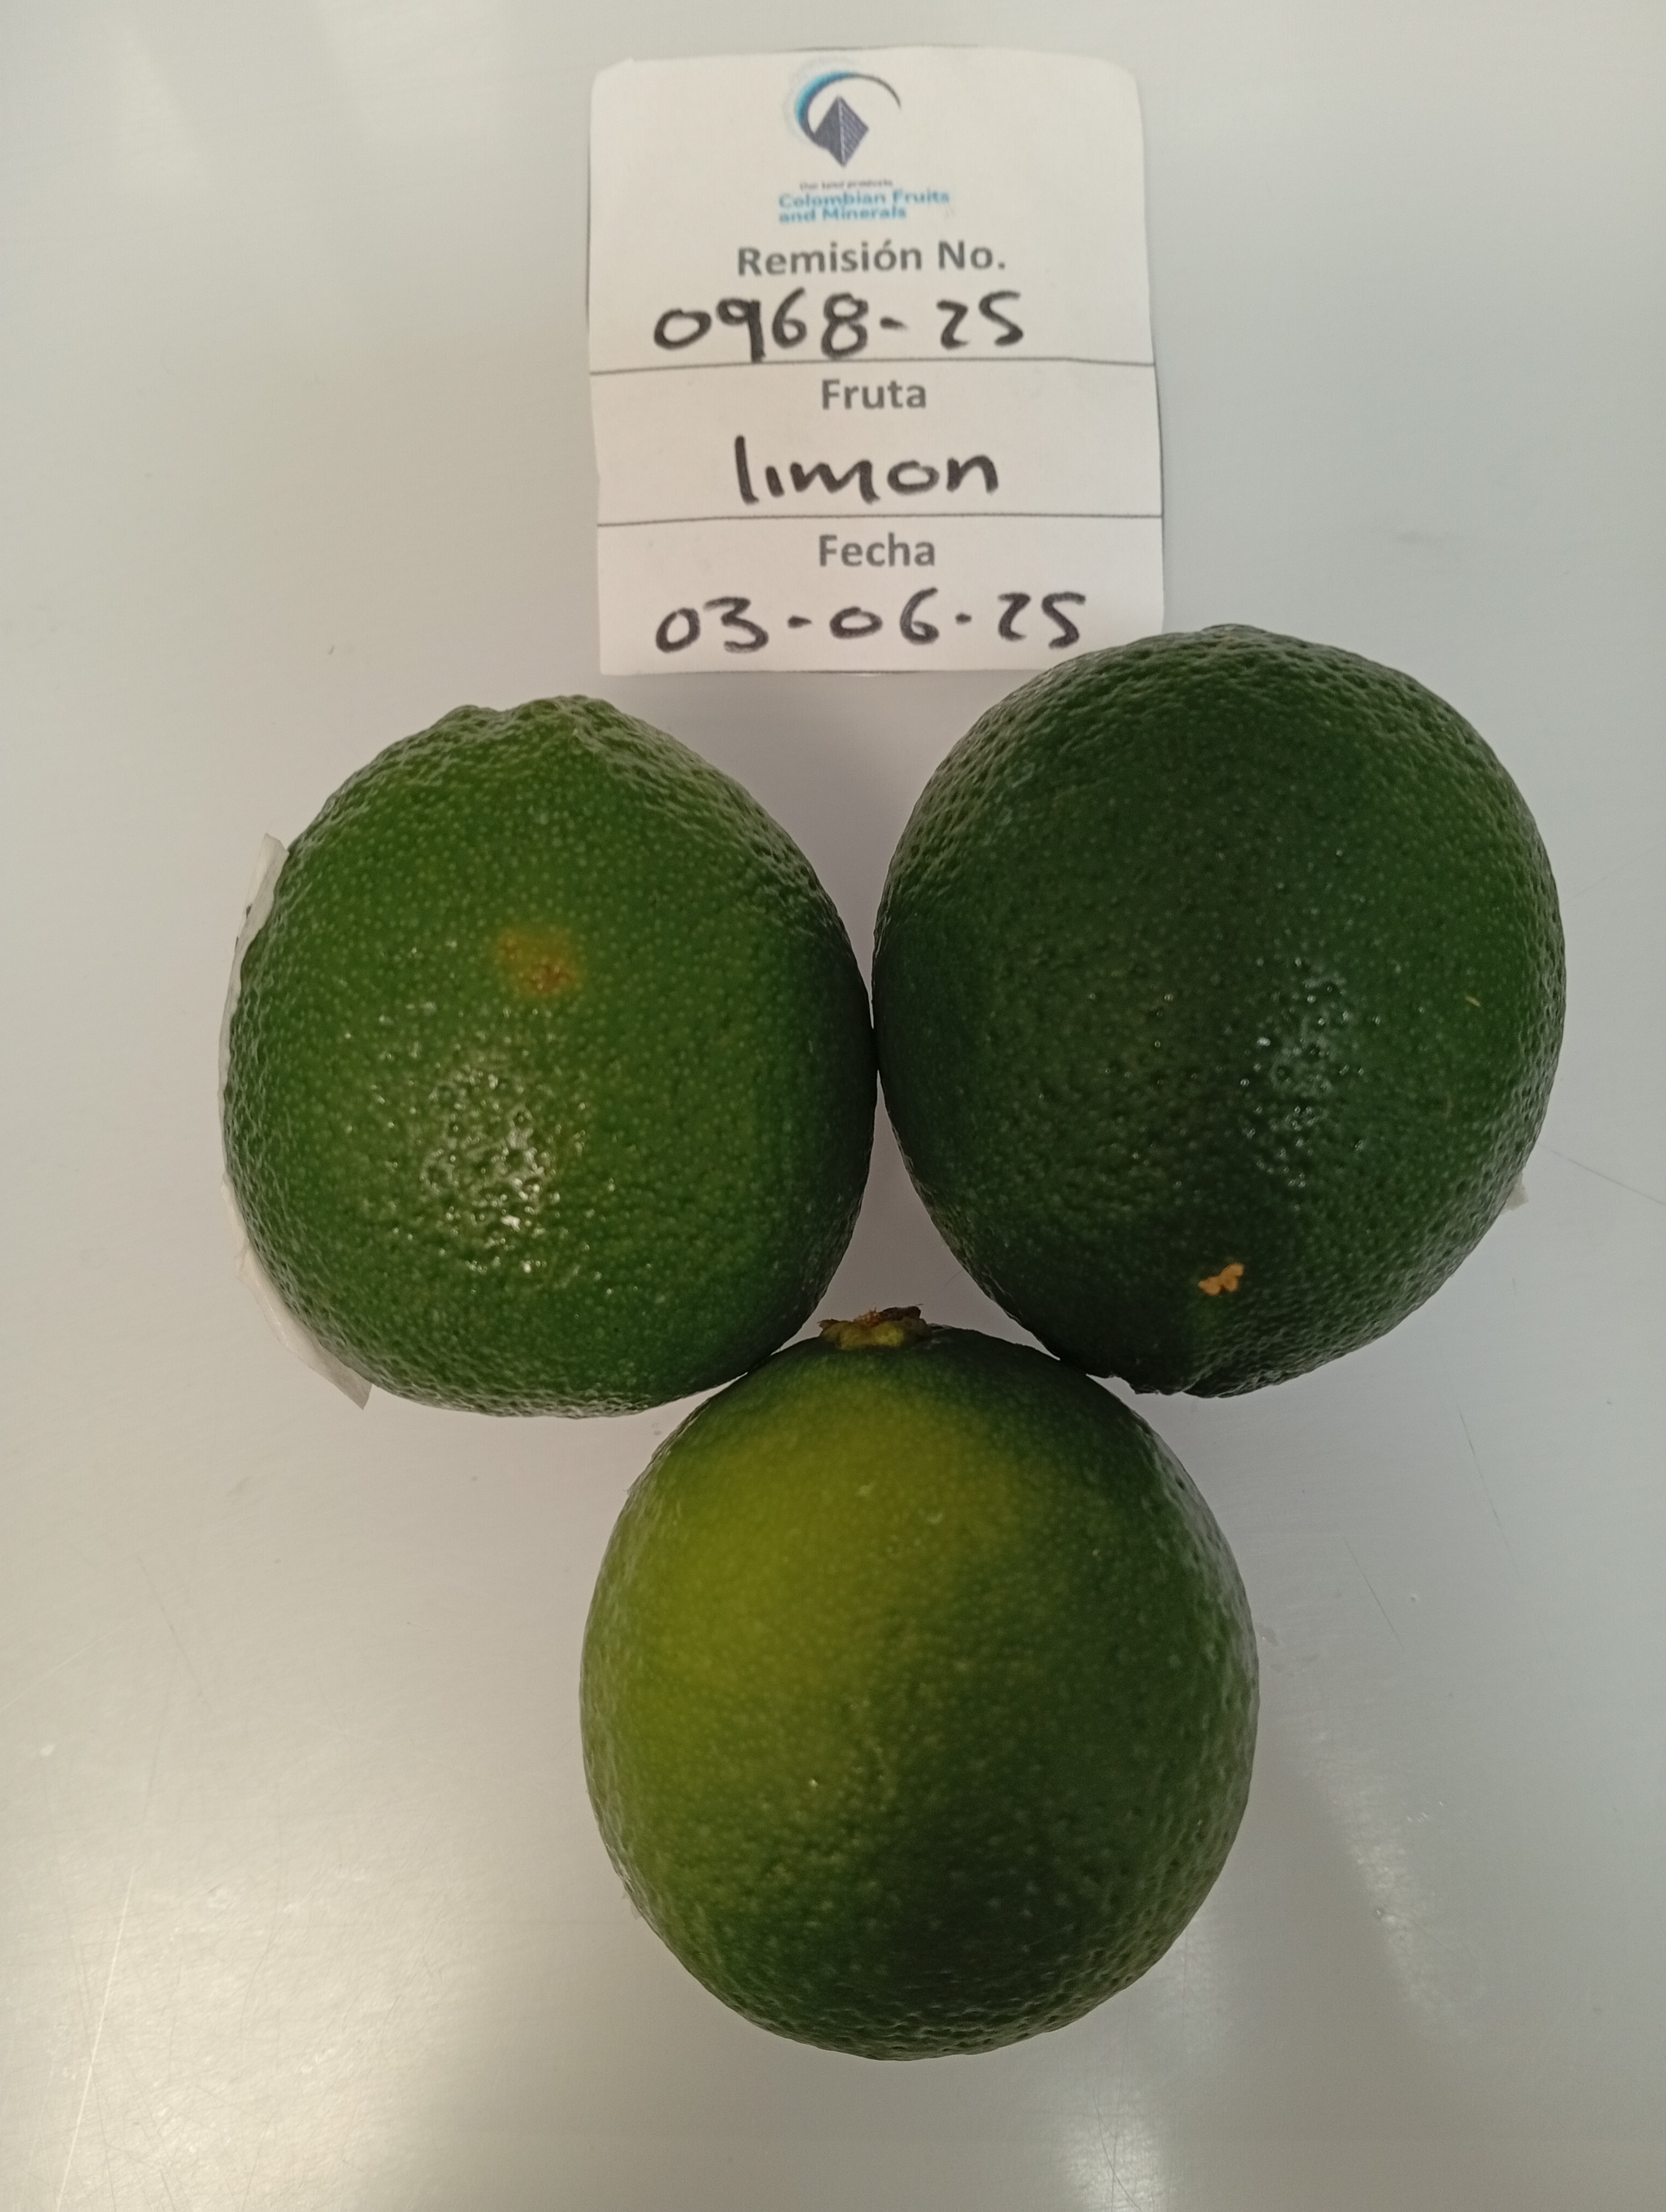 Our land products
Colombian Fruits
and Minerals
Remisión No.
0968-25
Fruta
limon
Fecha
03-06-25